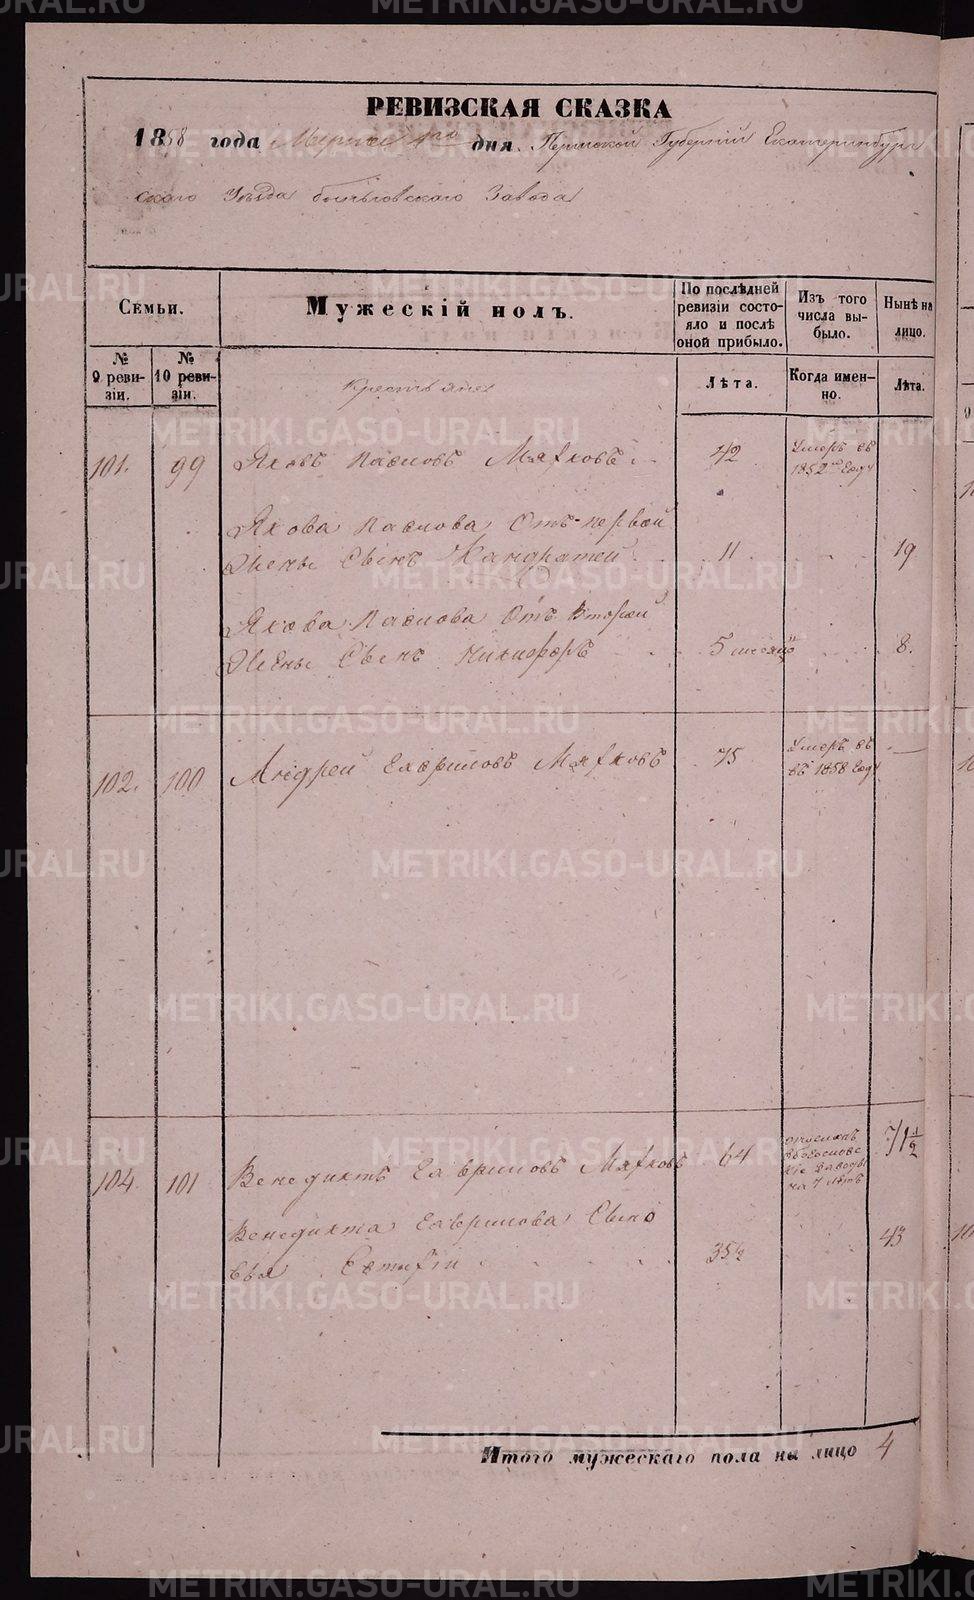 РЕВИЗСКАЯ СКАЗКА
1858 года Марта 1го дня. Пермской Губернии Екатеринбург
скаго Уезда Завода
Семьи.
Мужескій полъ.
По послѣдней ревизіи состояло и послѣ оной прибыло.
Изъ того числа выбыло.
Нынѣ на лицо.
№ 9 ревизіи.
№ 10 ревизіи.
Крестьяне
Лѣта.
Когда именно.
Лѣта.
101. 99 Яковъ Мяхковъ 42 Умеръ въ 1852мъ году
Якова Отъ первой
Жены Сынъ 11 19
Якова Отъ Второй
Жены Сынъ Никифоръ 5 месяцъ 8.
102. 100 Андрей Гавриловъ Мяхковъ 75 Умеръ въ 1858 году —
104. 101 Венедиктъ Гавриловъ Мяхковъ 64 на 7 летъ 71 1/2
Венедикта Гаврилова Сыно
вья Евтифій 35½ 43
Итого мужескаго пола на лицо 4
METRIKI.GASO-URAL.RU